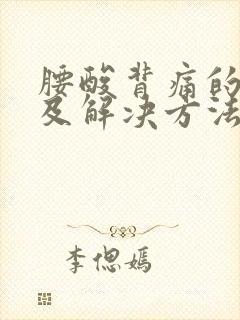 腰酸背痛的
及解决方法
李偲嫣